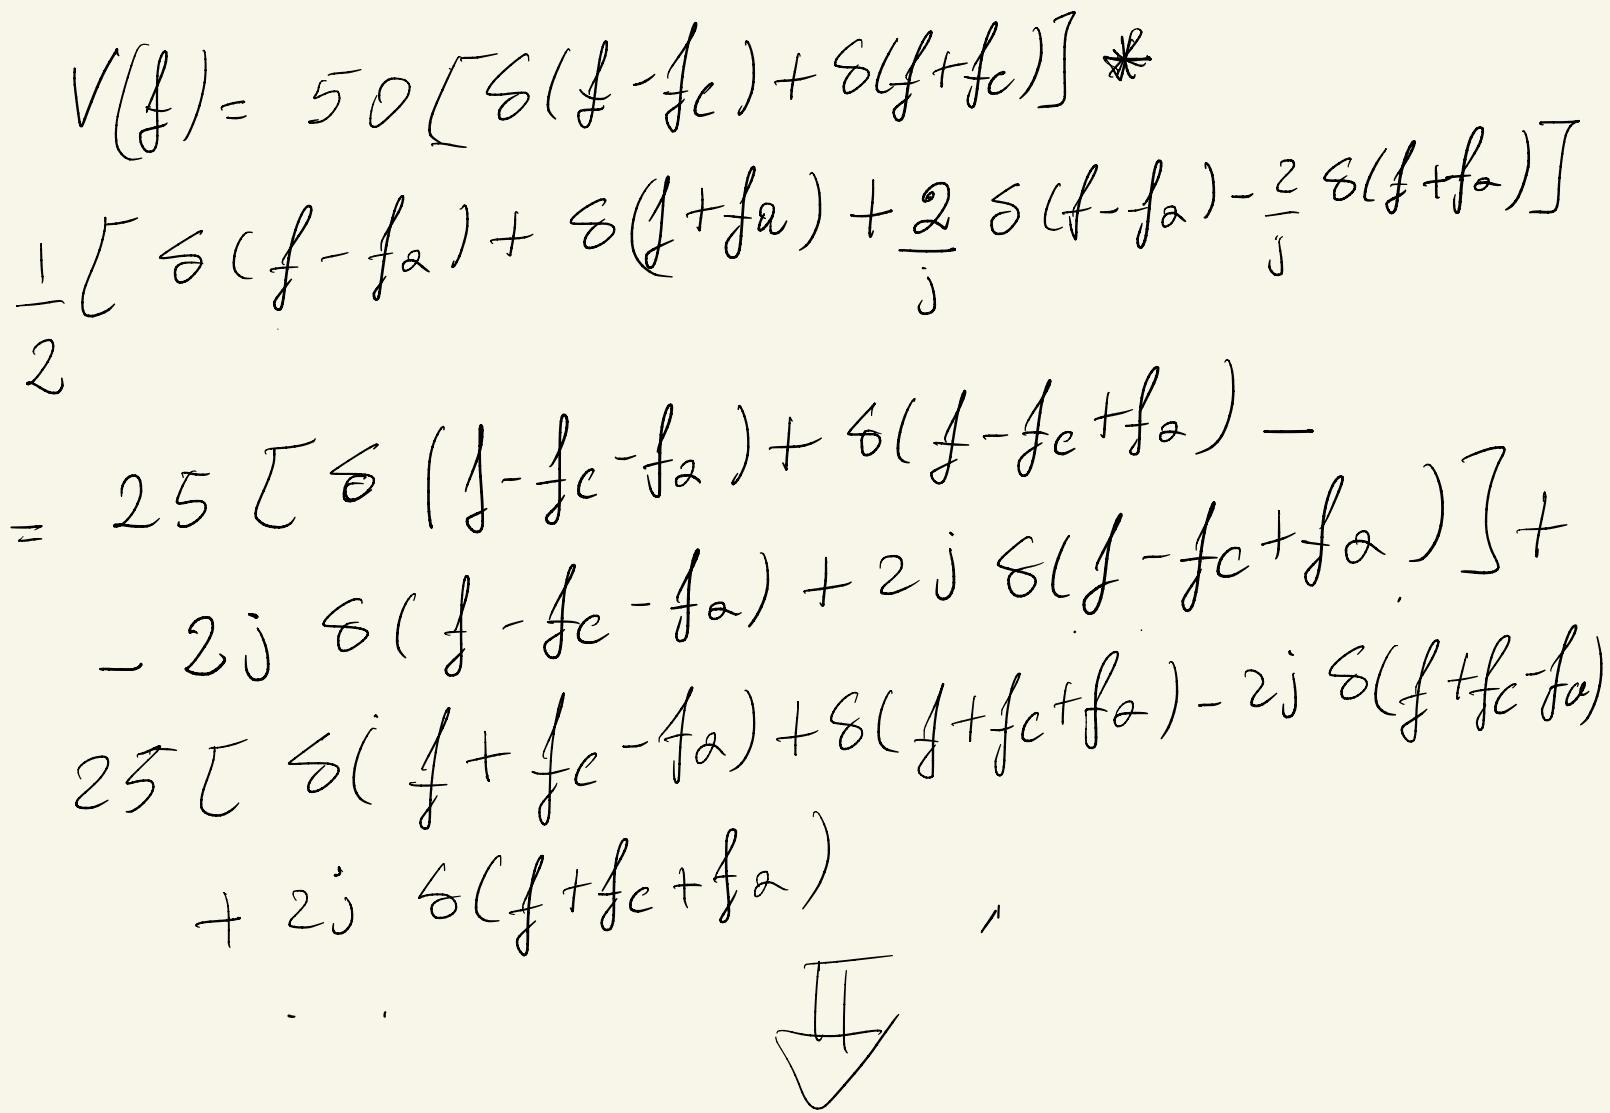 V(f) = 50 [δ(f-fc) + δ(f+fc)] *
1/2 [δ(f-fa) + δ(f+fa) + 2/j δ(f-fa) - 2/j δ(f+fa)]
= 25 [δ(f-fc-fa) + δ(f-fc+fa) -
- 2j δ(f-fc-fa) + 2j δ(f-fc+fa)] +
25 [δ(f+fc-fa) + δ(f+fc+fa) - 2j δ(f+fc-fa)
+ 2j δ(f+fc+fa)